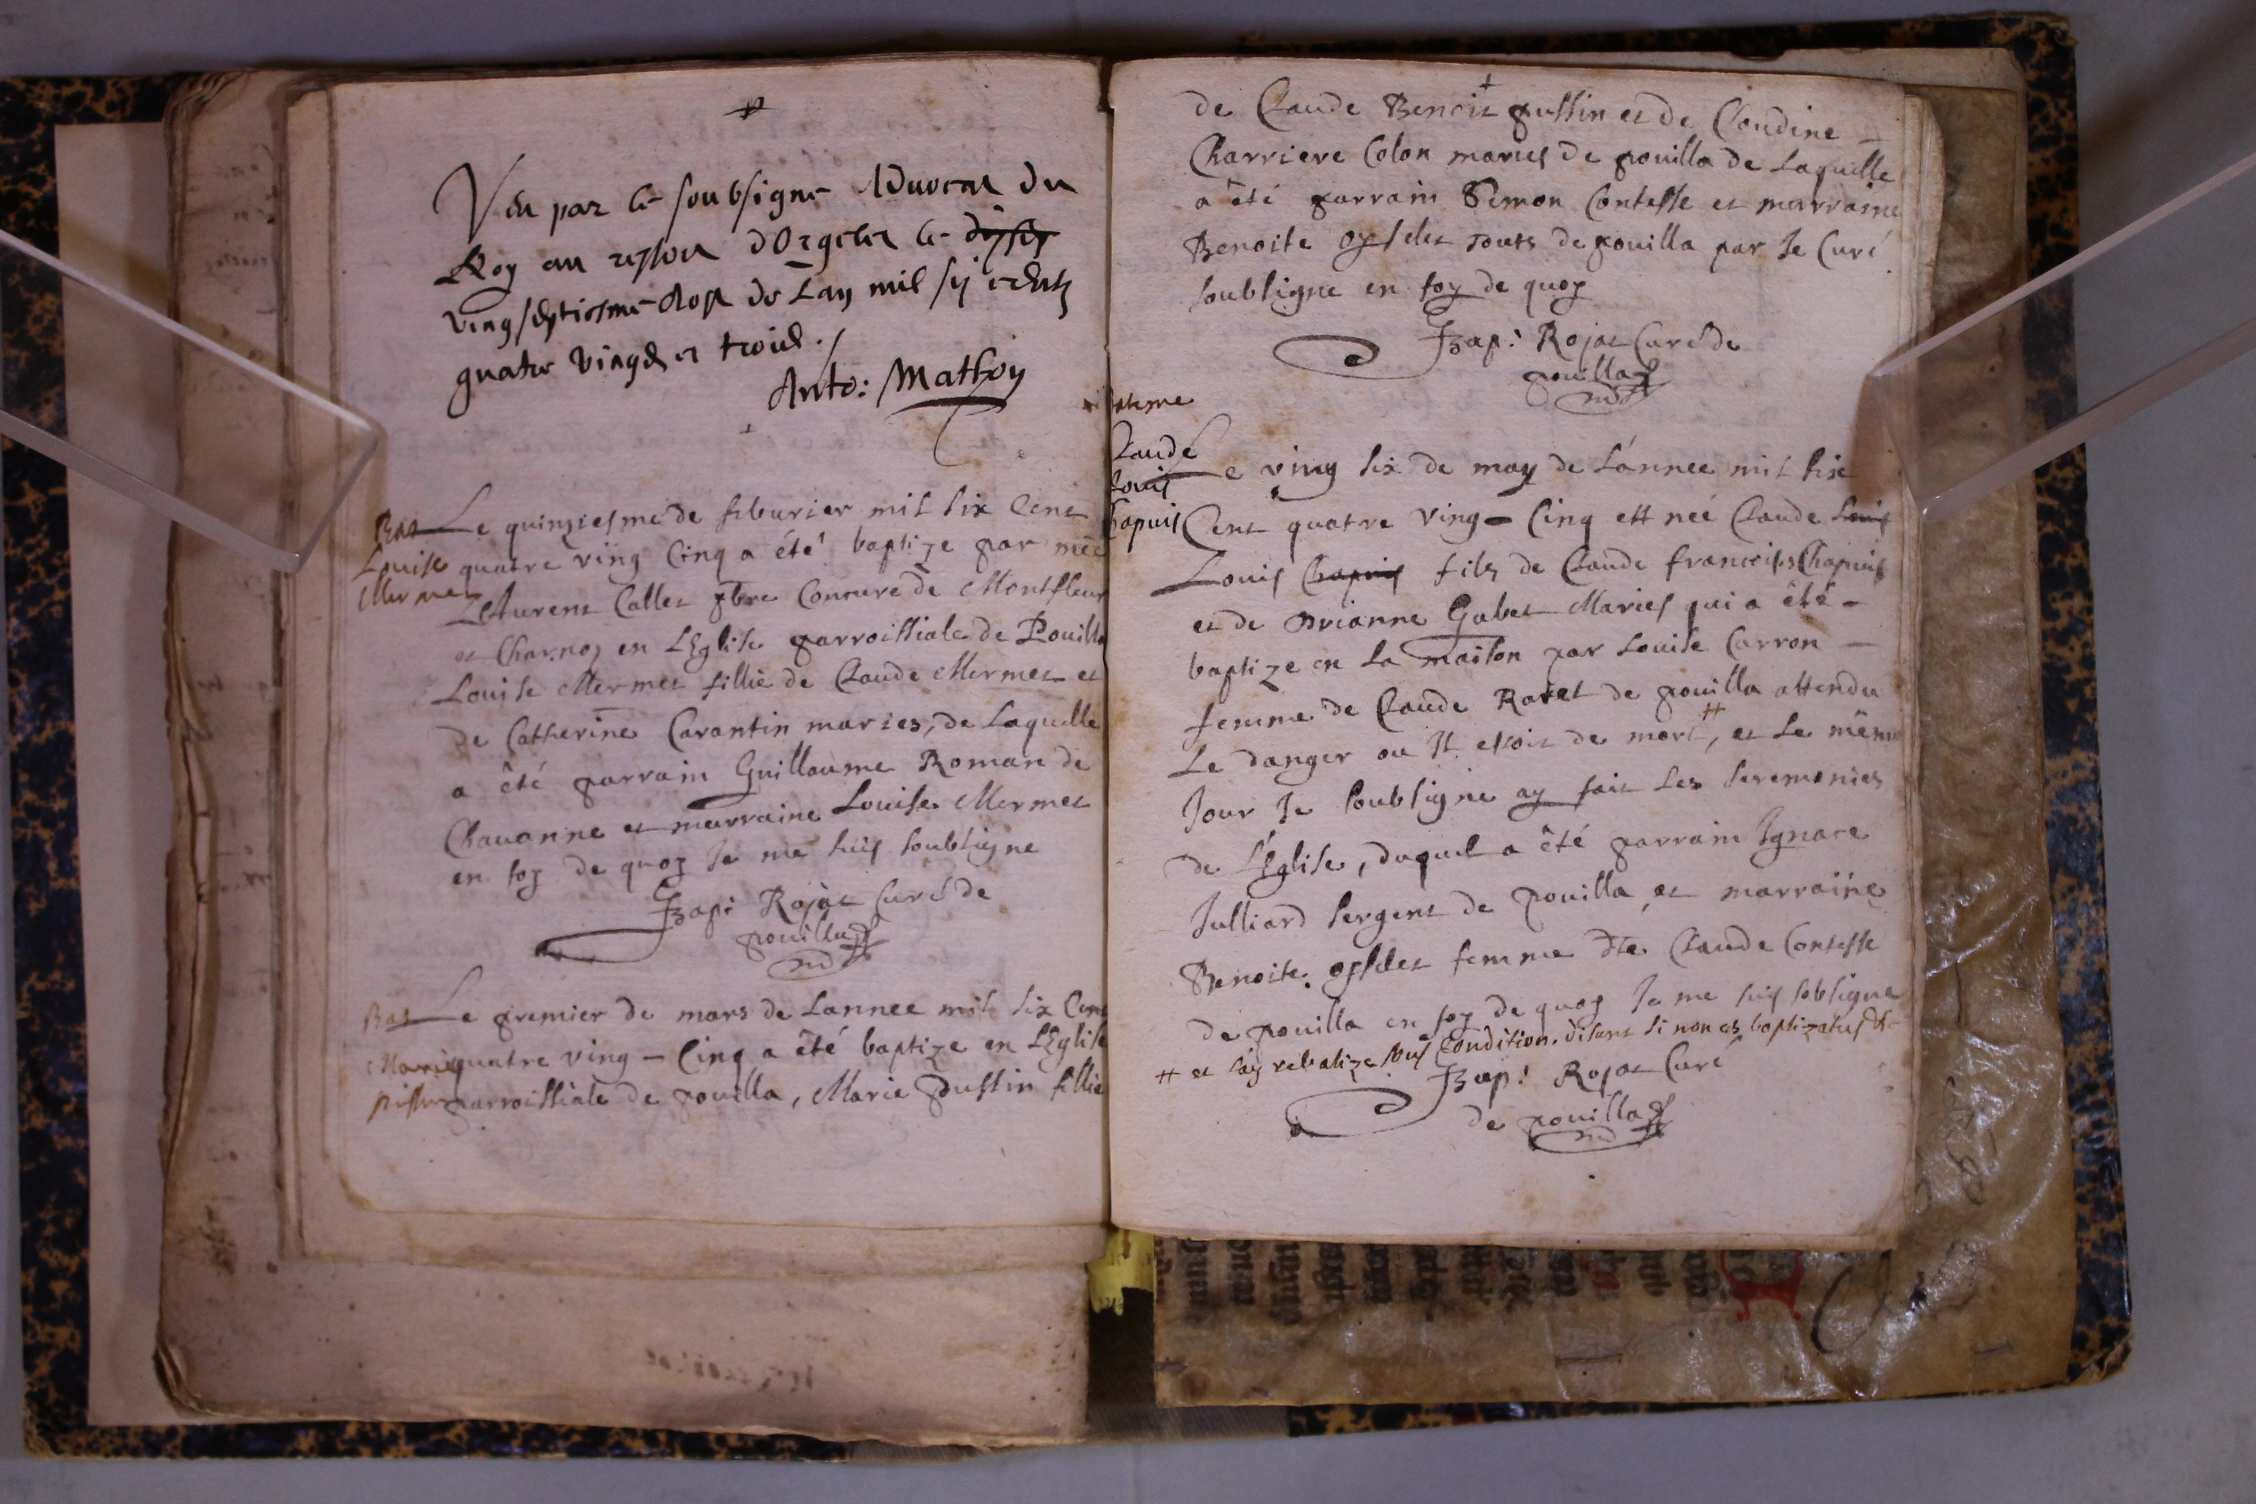 Veu par le soubsigne Aduocat du
Roy au ressort dOrgelet le
vingseptiesme Aost de Lan mil six centz
quatre vingtz et trois.
Anto: Mathon
Bat
Louise
Mermet
Le quinziesme de feburier mil six Cent
quatre ving Cinq a été baptize par mée
LAurent Callet pbre Concure de Montfleur
et Charnoz en LEglise parroissiale de Pouilla
Louise Mermet fillie de Claude Mermet et
de Catherine Carantin maries, de Laquelle
a êté parrain Guillaume Roman de
Chauanne et marraine Louise Mermet
en foy de quoy Je me suis soubsigne
Bap: Rojat Curé de
pouilla
Bat
Marie
pussin
Le premier de mars de Lannee mil six Cent
quatre ving - Cinq a êté baptize en LEglise
parroissiale de pouilla, Marie Pussin fillie
de Claude Benoit pussin et de Claudine
Charriere Colon maries de pouilla de Laquelle
a êté parrain Simon Contesse et marraine
Benoite oyselet touts de pouilla par Je Curé
soubsigne en foy de quoy
Bap: Rojat Curé de
pouilla
Bateme
Claude
Louis
Chapuis
Le ving six de may de L'annee mil six
Cent quatre ving - Cinq est neé Claude Louis
Louis Chapuis filz de Claude francois Chapuis
et de Brianne Gabet Maries qui a êté -
baptize en La maison par Louise Carron -
femme de Claude Ravet de pouilla attendu
Le danger ou Jl estoit de mort #, et Le même
Jour Je soubsigne ay fait Les seremonies
de L'Eglise, duquel a êté parrain Jgnace
Julliard sergent de pouilla et marraine
Benoite oyselet femme de Claude Contesse
de pouilla en foy de quoy Je me suis sobsigne
# et Lay rebatize sous Condition. disant si non es baptizatus &c
Bap: Rojat Curé
de pouilla